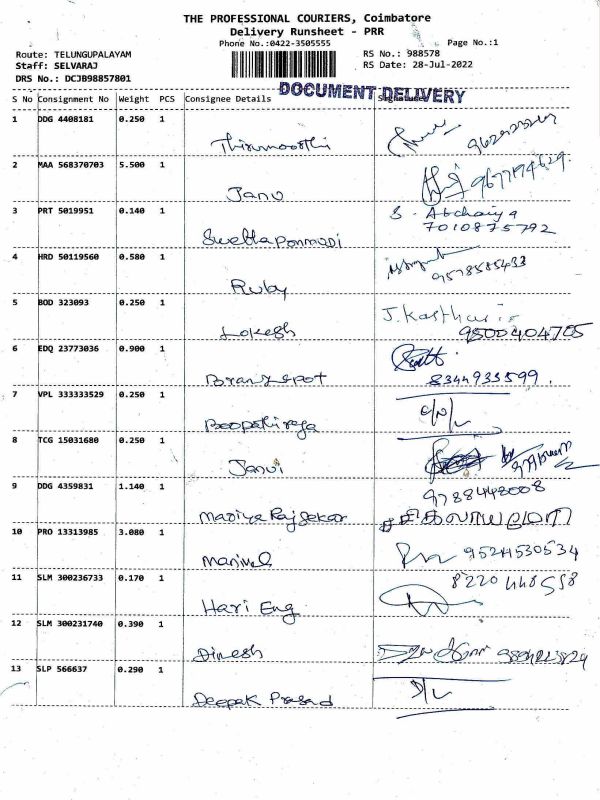 THE PROFESSIONAL COURIERS, Coimbatore
Delivery Runsheet - PRR
Phone No.:0422-3505555
Page No.:1
Route: TELUNGUPALAYAM
RS No.: 988578
Staff: SELVARAJ
RS Date: 28-Jul-2022
DRS No.: DCJB98857801
DOCUMENT DELIVERY
S No Consignment No Weight PCS Consignee Details Signature
1 DDG 4408181 0.250 1
Thirumoorthi
2 MAA 568370703 5.500 1
Janu
3 PRT 5019951 0.140 1 S - Abchaiya
7010875792
Swetta Ponmani
4 HRD 50119560 0.580 1
9578585433
Ruby
5 BOD 323093 0.250 1 J. Kasthuri
Lokesh 9500404705
6 EDQ 23773036 0.900 1
8344933599
7 VPL 333333529 0.250 1
Boopathiraja
8 TCG 15031680 0.250 1
Janvi
9 DDG 4359831 1.140 1 9788448008
Mariya Rajsekar
10 PRO 13313985 3.080 1
Manivel 9524530534
11 SLM 300236733 0.170 1 8220448558
Hari Eng
12 SLM 300231740 0.390 1
Dinesh
13 SLP 566637 0.290 1 D/L
Deepak Prasad